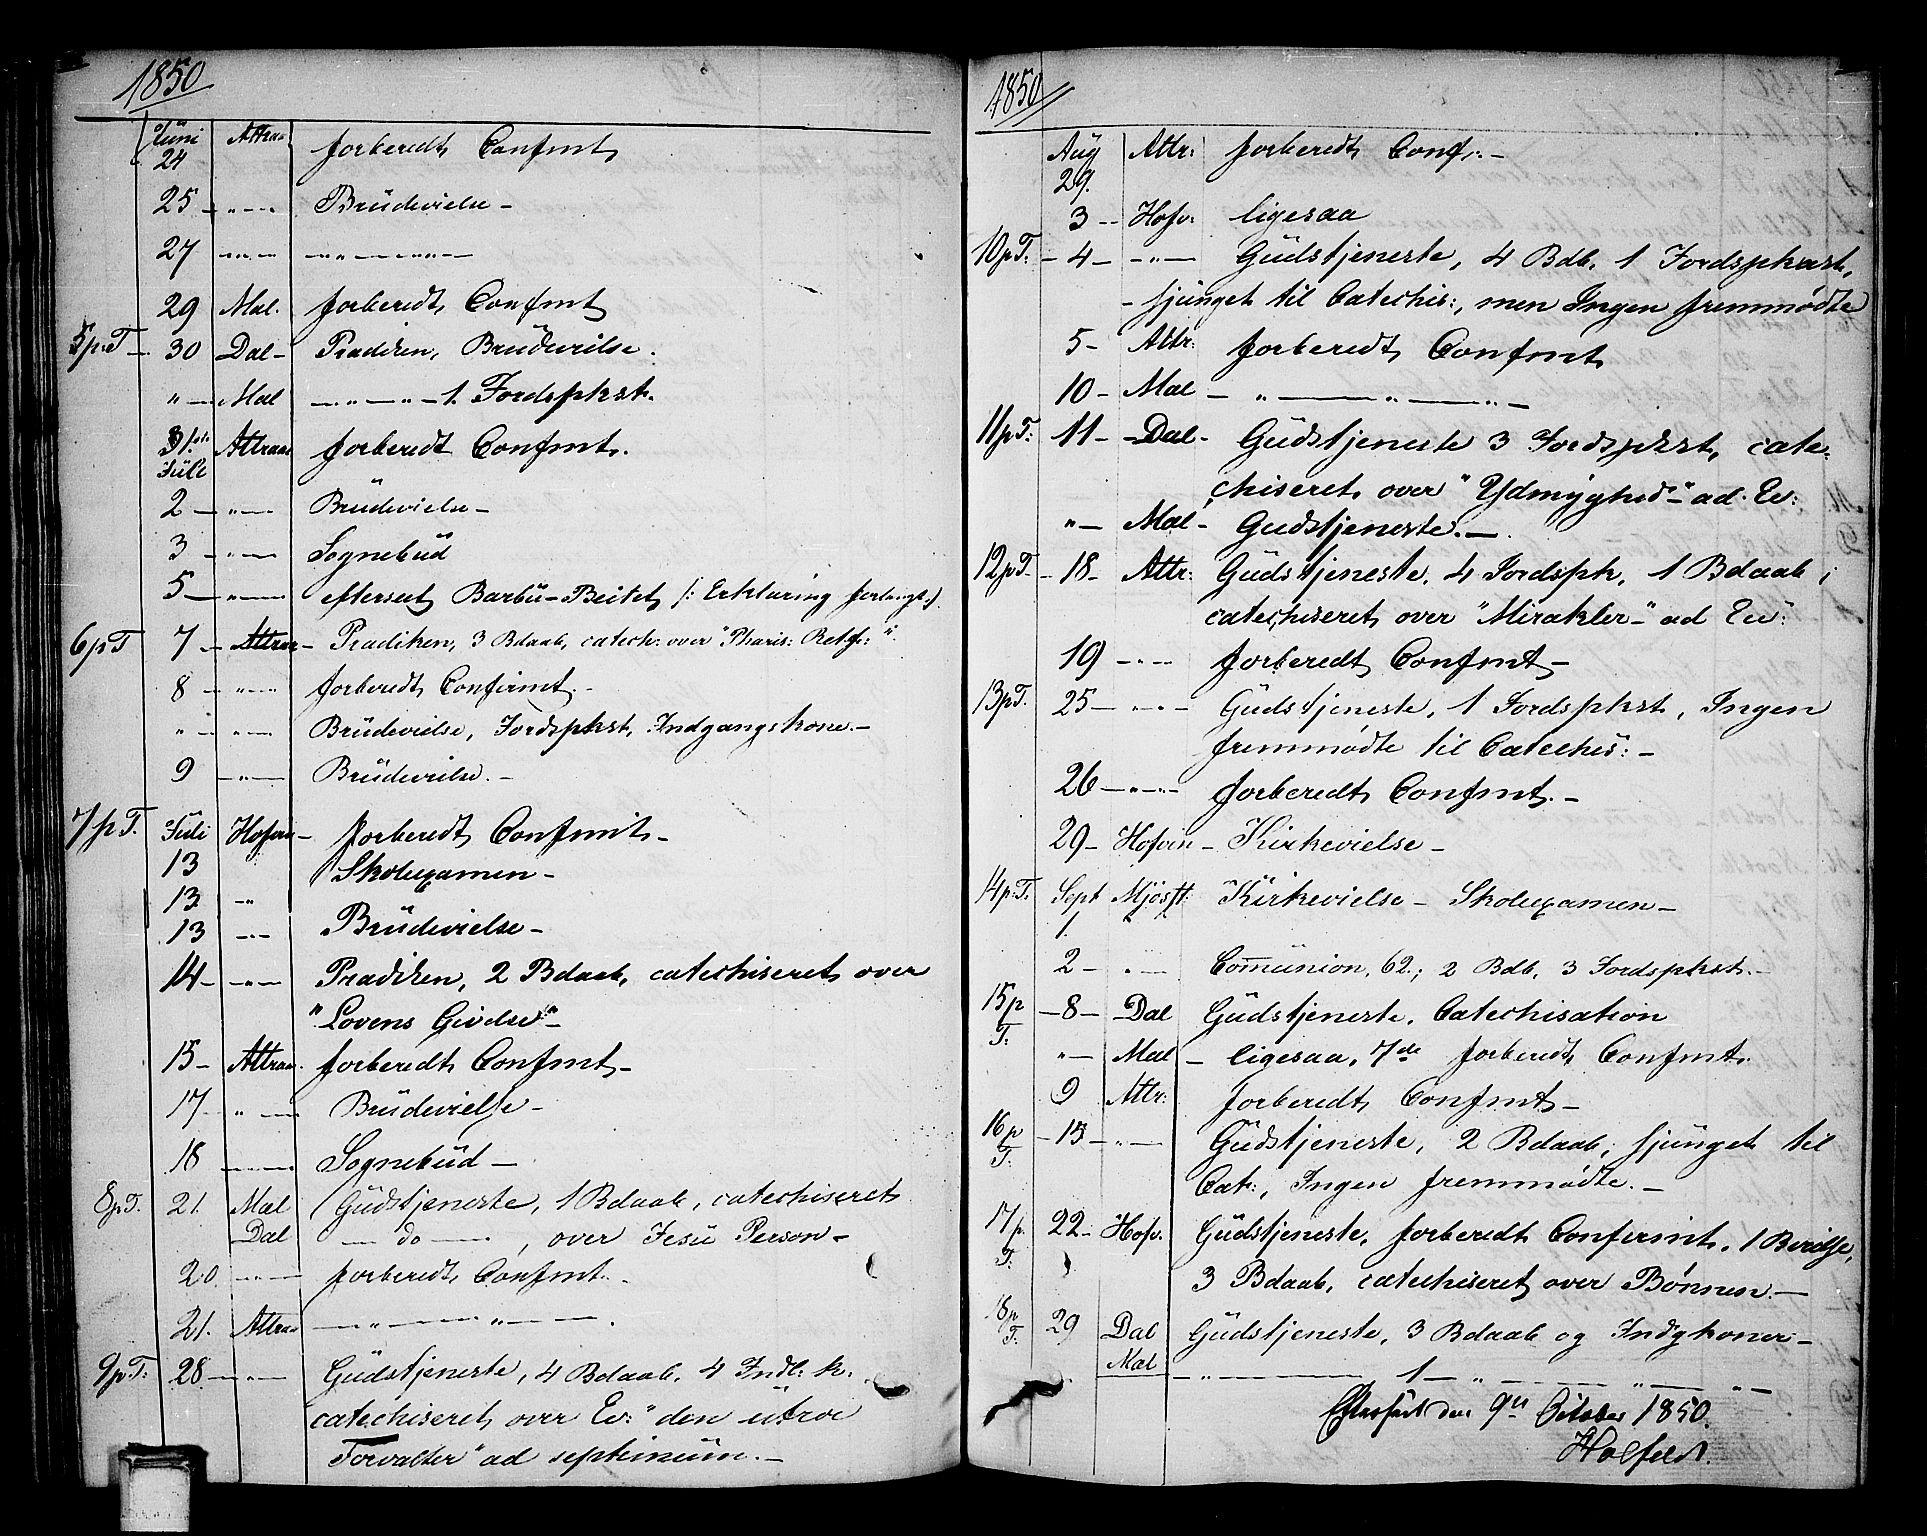 1850
Juni Attraa forberedt Confmt
24
25 — „ — Brüdevielse –
27 „ — „ — „ — „ —
29 Mæl. forberedt Confmt
5 p: T – 30 Dal – Prædiken, Brüdevielse.
„ — Mæl — „ — „ — 1 Fordspkst.
31te Attraae forberedt Confmt.
Jüli
2 — „ — Brüdevielse –
3 — „ — Sognebüd
5 — „ — efterseet Barbü-Beitet /: Erklæring forlangt :/
6 p T 7 – Attraa – Prædiken, 3 Bdaab, catech: over "Pharis: Retfr: "
8 — „ — forberedt Confirmt. –
„ — „ — Brüdevielse, Fordspkst, Indgangskone. –
9 — „ — Brüdevielse. –
7 p T. Jüli Hofvin – forberedt Confmt –
13 Skolexamen –
13 – „ –
13 — „ — Brüdevielse –
14 — „ — Prædiken, 2 Bdaab, catechiseret over
"Lovens Givelse" –
15 – Attraa. forberedt Confmt –
17 „ — Brüdevielse –
18 — „ — Sognebüd –
8 p T. 21. Mæl Güdstjeneste, 1 Bdaab, catechiseret
Dal — do — , over Jesü Person –
20 — „ — forberedt Confmt. –
21. Attraa — „ — „ — .
9 p T: 28 — „ — Güdstjeneste, 4 Bdaab. 4 Indl: k:
catechiseret over Ev: "den ütroe
Forvalter" ad septimüm. –
1850
Aüg Attr: forberedt Conf: –
29.
3 – Hofv: ligesaa
10 p T: – 4 – – „ — Güdstjeneste, 4 Bdb. 1 Fordspkst,
– sjünget til Catechis:, men Ingen fremmødte
5 – Attr: forberedt Confmt
10 – Mæl — „ — „ — „ —
11 p T: 11 – – Dal – Güdstjeneste 3 Fordspkst, cate-
chiseret over "Ydmyghed" – ad. Ev:
„ – Mæl – Gudstjeneste. –
12 p T – 18 – Attr: Güdstjeneste, 4 Fordspk, 1 Bdaab;
catechiseret over "Mirakler" – ad Ev:
19 — „ — forberedt Confmt –
13 p T. 25 — „ — Güdstjeneste, 1 Fordspkst, Ingen
fremmødte til Catechis: –
26 — „ — forberedt Confmt. –
29 – Hofvin – Kirkevielse –
14 p: T. Sept Mjösst: Kirkevielse – Skolexamen –
1
2 – „ — Comünion, 62.; 2 Bdb, 3 Fordspkst. –
15 p – 8 – Dal Güdstjeneste, Catechisation
T: „ – Mæl – ligesaa, 7de forberedt Confmt.
9 Attr: forberedt Confmt –
16 p – 15 – „ — Güdstjeneste, 2 Bdaab, sjünget til
T: Cat:, Ingen fremmødte. –
17 p. 22 – Hofv. Güdstjeneste, forberedt Confirmt.
T: 3 Bdaab, catechiseret over Bønnen. –
18 p 29 Dal Güdstjeneste, 3 Bdaab og Indgkoner –
T: Mæl — „ — 1 — „ — „ — „ —
Efterseet den 9de October 1850.
Holfeldt.